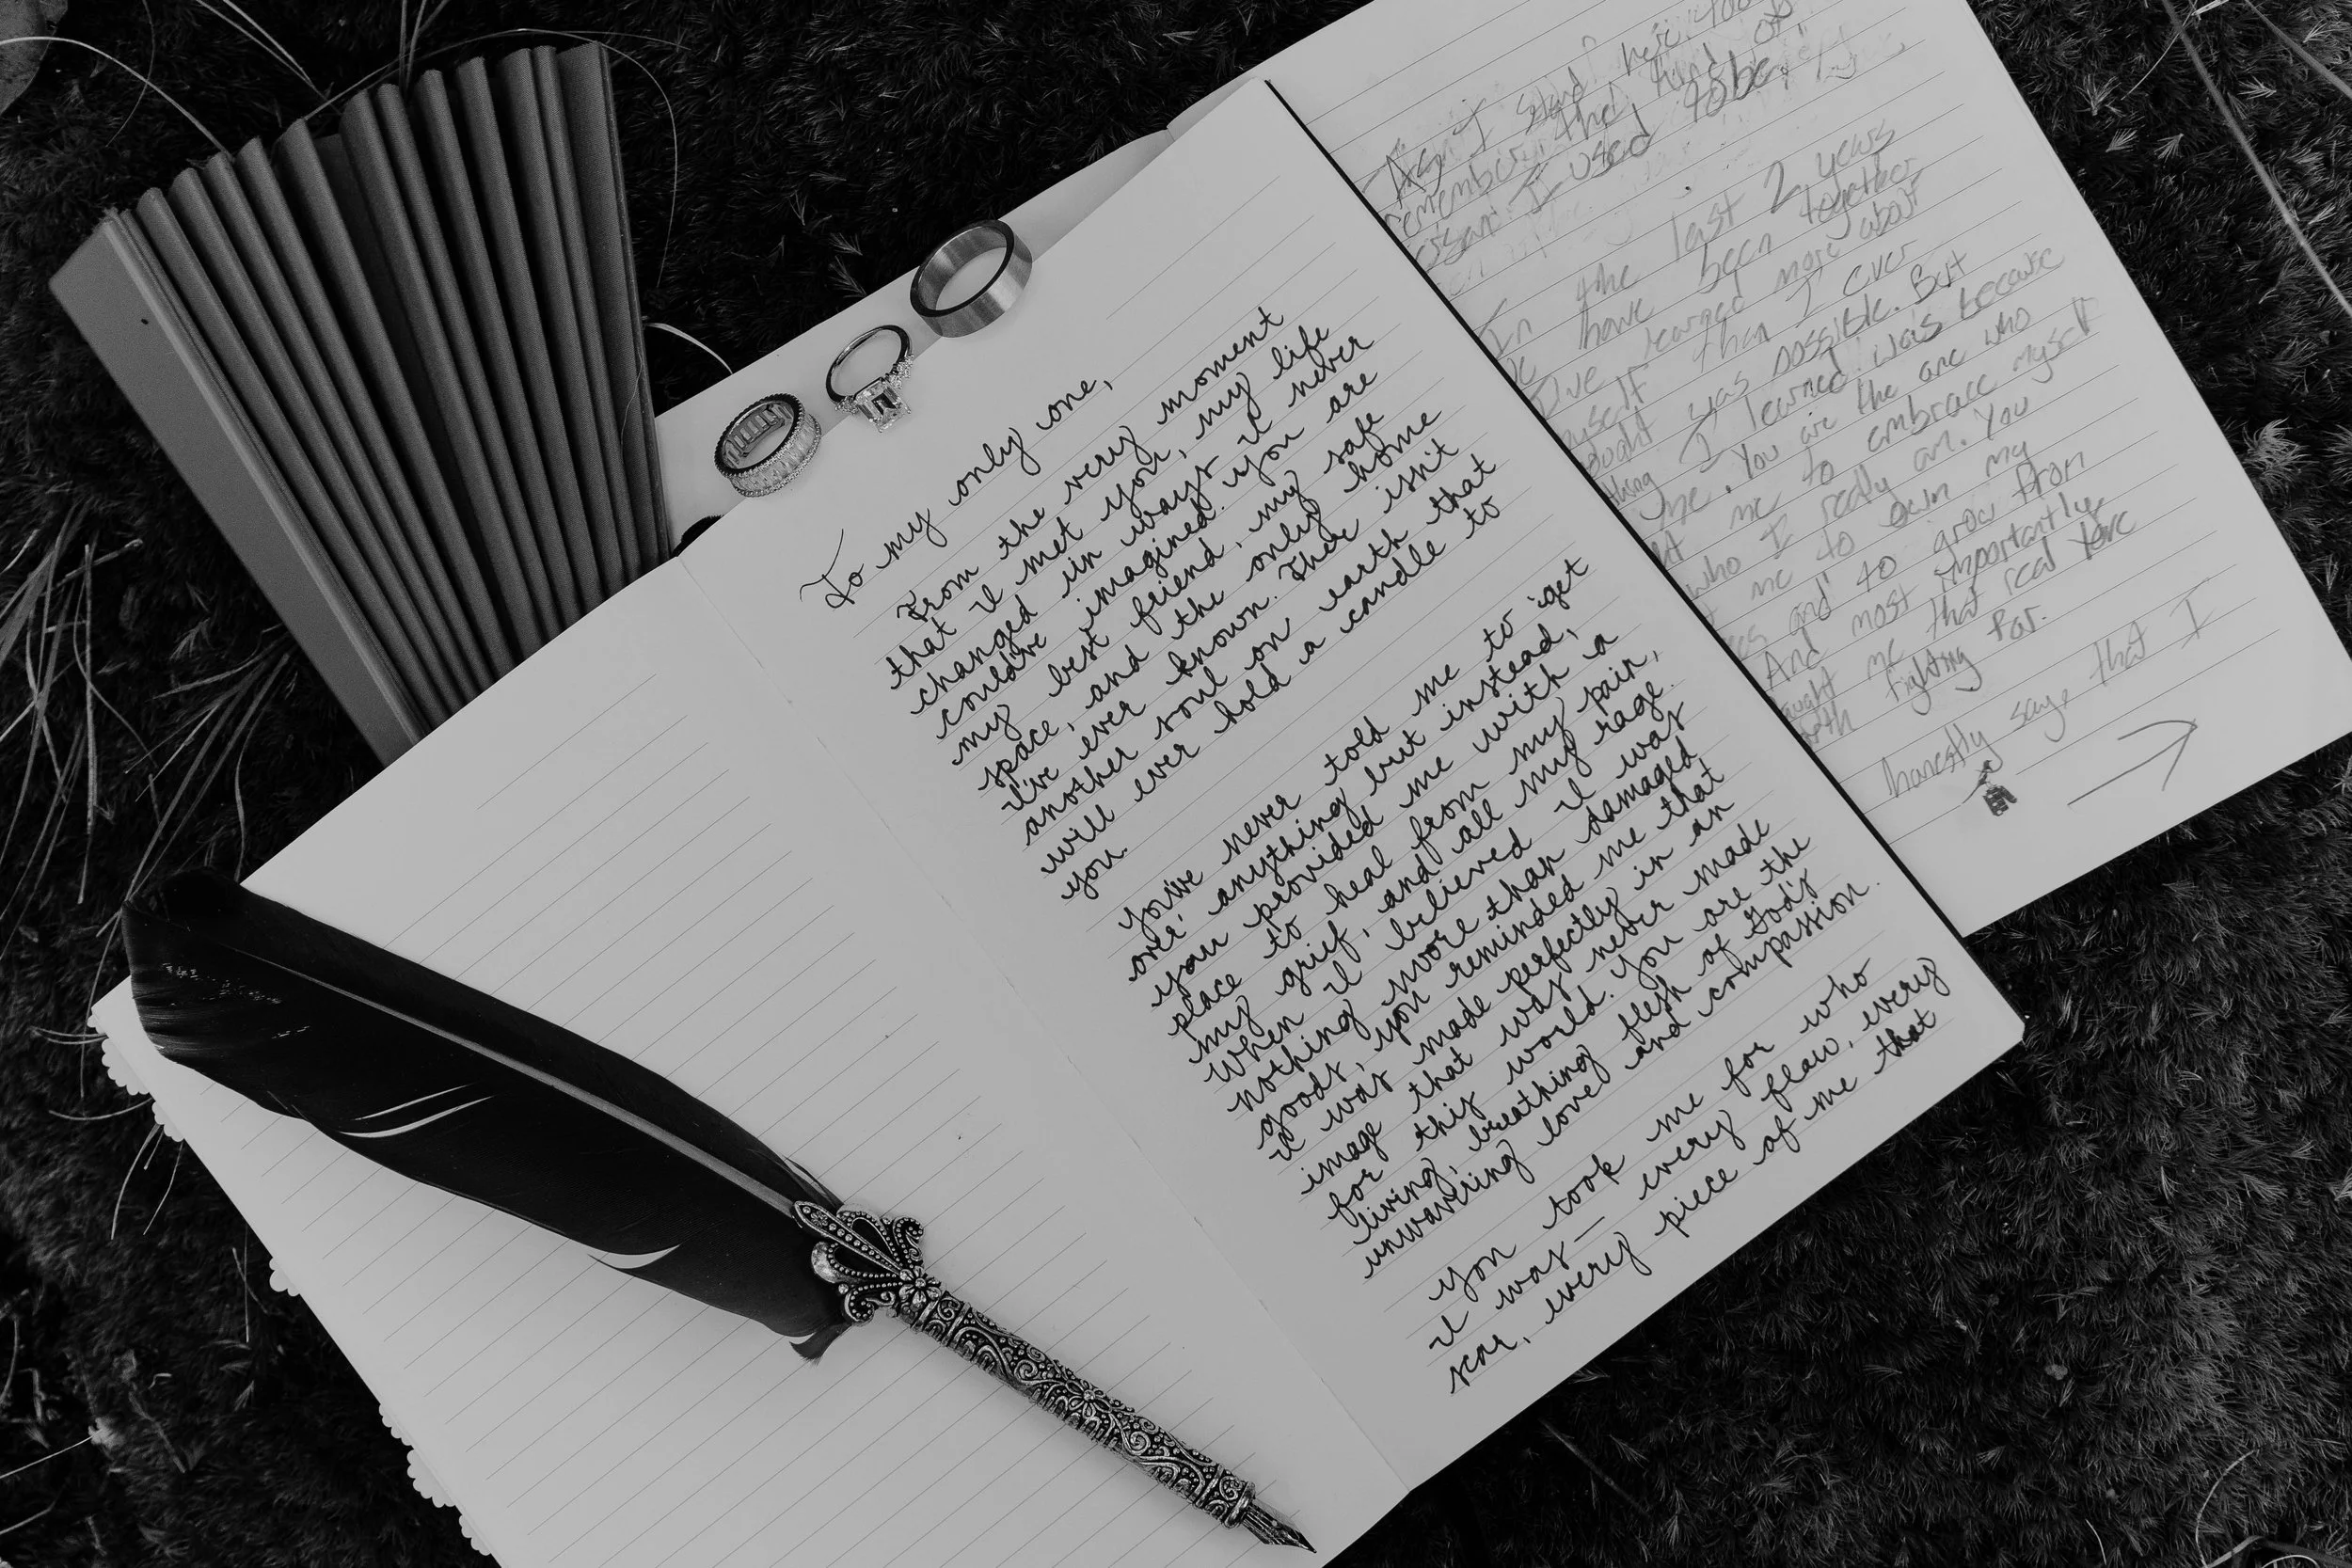 To my only one,
From the very moment
that I met you, my life
changed in ways I never
could've imagined. you are
my best friend, my safe
space, and the only home
I've ever known. There isn't
another soul on earth that
will ever hold a candle to
you.
you've never told me to "get
over" anything but instead,
you provided me with a
place to heal from my pain,
my grief, and all my rage.
When I believed I was
nothing more than damaged
goods, you reminded me that
I was made perfectly in an
image that was never made
for this world. you are the
living, breathing flesh of God's
unwavering love and compassion.
you took me for who
I was— every flaw, every
scar, every piece of me that
As I stand here
remember the kind of
I used to be.
In the last 2 years
have been together
I've learned more about
myself than I ever
was possible. But
thing I learned was because
me. You are the one who
me to embrace myself
who I really am. You
me to own my
and to grow from
And most importantly
me that real love
fighting for.
honestly say, that I